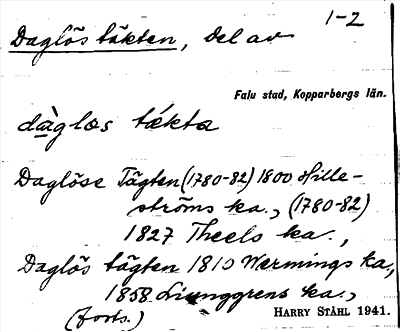 Daglös täkten, del av 1-2
Falu stad, Kopparbergs län.
dàglⱥs tǽkta
Daglöse Tägten (1780-82) 1800 Hille-
ströms ka., (1780-82)
1827 Theels ka.,
Daglös tägten 1810 Wermings ka.,
1858 Ljunggrens ka.,
(forts.)
HARRY STÅHL 1941.